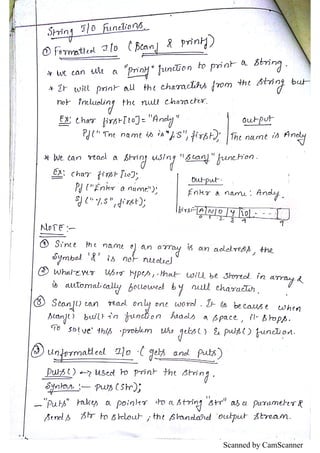 String I/O Functions.
① Formatted I/O (Scanf & printf)
* We can use a "printf" function to print a string.
* It will print all the characters from the string but
not including the null character.
Ex: char first[10] = "Andy"
output
Pf("The name is is "%s", first);
The name is Andy
* We can read a string using "scanf" function.
Ex: char first[10];
Output.
Pf("Enter a name");
Enter a name: Andy.
Sf("%s", first);
first → A N D Y \0 - - -
0 1 2 3 4 9
NOTE :-
① Since the name of an array is an address, the
Symbol '&' is not needed
② Whatever user types, that will be stored in array &
is automatically followed by null character.
③ Scanf() can read only one word. It is because when
Scanf() built in function reads a space, it stops.
To solve this problem use gets() & puts() function.
② Unformatted I/O - (gets and puts)
Puts() → Used to print the string.
Syntax :- puts(str);
- "Puts" takes a pointer to a string "str" as a parameter &
sends str to stdout, the standard output stream.
Scanned by CamScanner